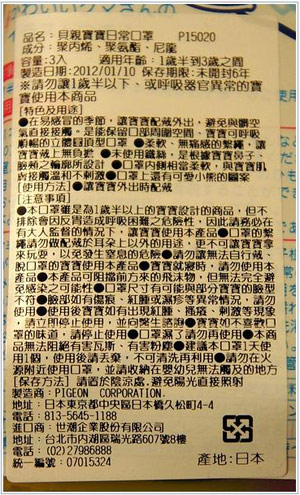 品名：貝親寶寶日常口罩 P15020
成分：聚丙烯、聚氨酯、尼龍
容量：3入 適用年齡：1歲半到3歲之間
製造日期：2012/01/10 保存期限：未開封6年
※請勿讓1歲半以下、或呼吸器官異常的寶
寶使用本商品
【特色及用途】
●在易感冒的季節，讓寶寶配戴外出，避免與髒空
氣直接接觸。是能保留口部周圍空間，寶寶可呼吸
順暢的立體圓頂型●柔軟、無痛感的繫繩，讓
寶寶戴上無負擔●未使用鐵絲，是根據寶寶鼻子、
臉頰之輪廓所設計●口罩內側相當柔軟，與寶寶肌
膚接觸溫和不刺激●口罩上還有可愛小熊的圖案
【使用方法】●讓寶寶外出時配戴
【注意事項】
●本口罩雖是為1歲半以上的寶寶設計的商品，但不
排除會因反胃造成呼吸困難之危險性，因此請務必在
有大人監督的情況下，讓寶寶使用本產品●口罩的繫
繩請勿做配戴於耳朵上以外的用途，更不可讓寶寶拿
來玩耍，以免發生窒息的危險●請勿讓無法自行戴、
脫口罩的寶寶使用本產品●寶寶就寢時，請勿使用本
產品●本產品可阻擋前方來的飛沫等，但無法完全避
免感染之可能性●口罩尺寸有可能與部分寶寶的臉型
不符●臉部如有傷痕、紅腫或濕疹等異常情況，請勿
使用●使用後寶寶如有出現紅腫、搔癢、刺激等現象
，請立即停止使用，並向醫生諮詢●寶寶如不喜歡口
罩的味道，請停止使用●口罩濕了請勿再使用●本商
品無法阻絕有害瓦斯、有害粉塵●建議本口罩1天使
用1個，使用後請丟棄，不可清洗再利用●請勿在火
源附近使用口罩，並請收納在嬰幼兒無法觸及的地方
【保存方法】請置於陰涼處，避免陽光直接照射
製造商：PIGEON CORPORATION.
地址：日本東京都中央區日本橋久松町4-4
電話：813-5645-1188
進口商：世潮企業股份有限公司
地址：台北市內湖區瑞光路607號8樓
電話：(02)27986888
統一編號：07015324
產地：日本